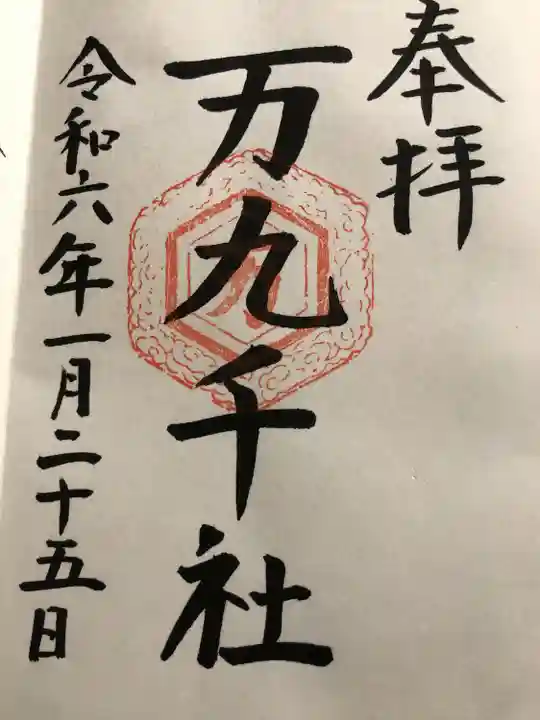 奉拝
万九千社
令和六年一月二十五日